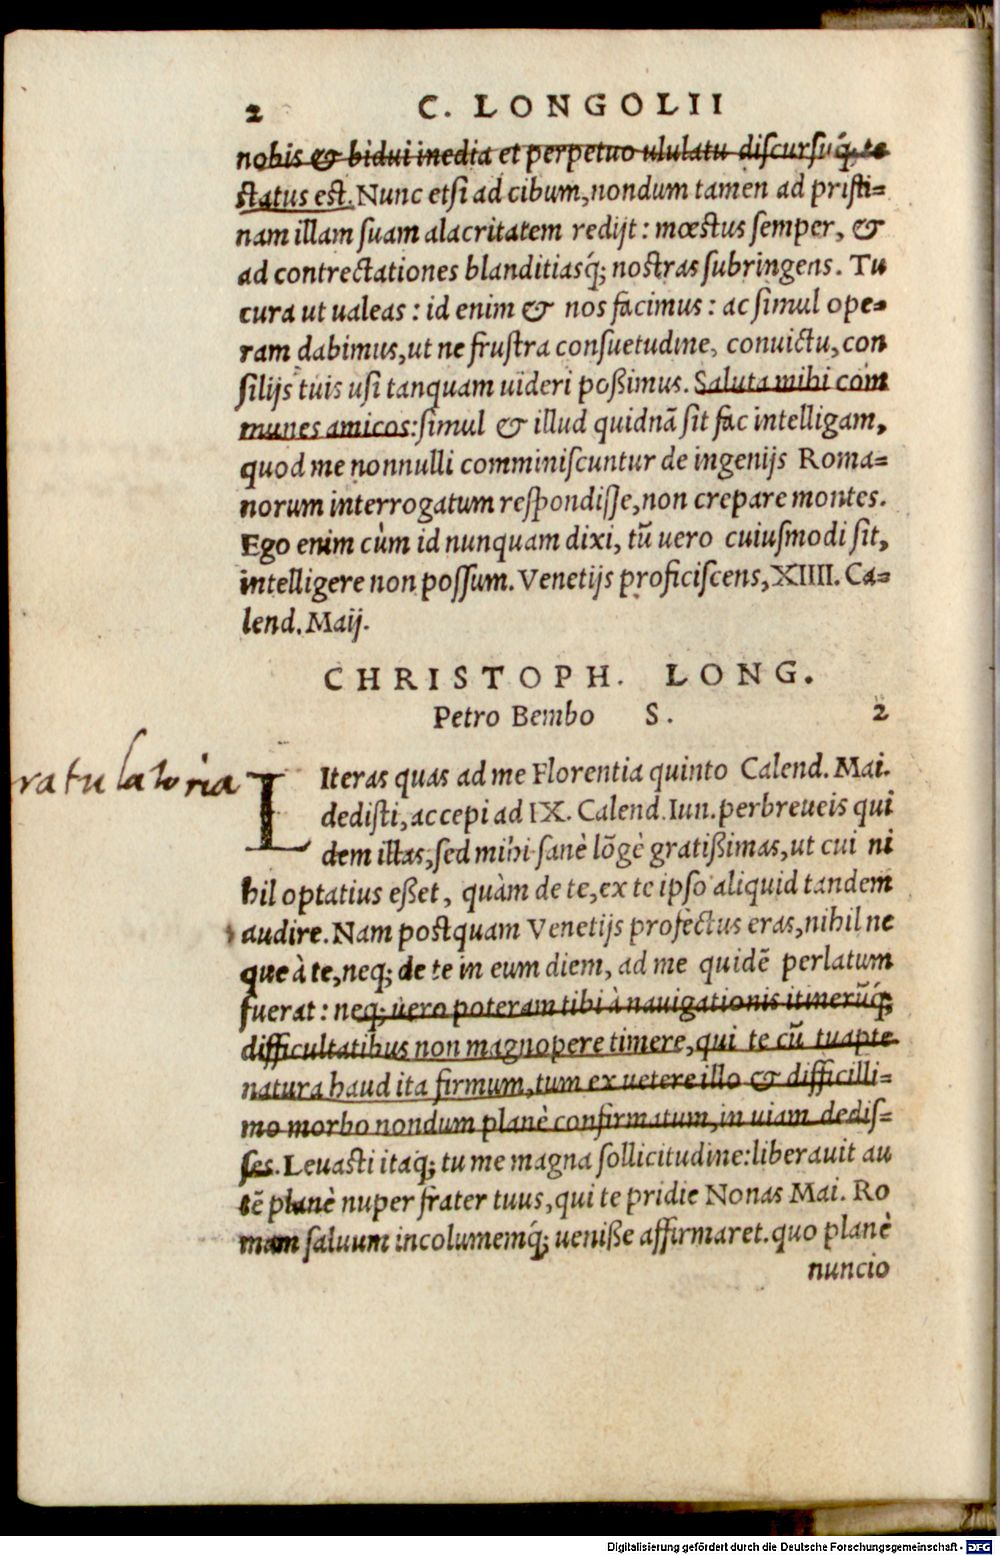 2 C. LONGOLII
nobis & bidui inedia et perpetuo ululatu discursuq́; te
status est. Nunc etsi ad cibum, nondum tamen ad pristi=
nam illam suam alacritatem redijt: mœstus semper, &
ad contrectationes blanditiasq́; nostras subringens. Tu
cura ut ualeas: id enim & nos facimus: ac simul ope=
ram dabimus, ut ne frustra consuetudine, conuictu, con
silijs tuis usi tanquam uideri poßimus. Saluta mihi com
munes amicos: simul & illud quidnã sit fac intelligam,
quod me nonnulli comminiscuntur de ingenijs Roma=
norum interrogatum respondisse, non crepare montes.
Ego enim cùm id nunquam dixi, tũ uero cuiusmodi sit,
intelligere non possum. Venetijs proficiscens, XIIII. Ca=
lend. Maij.
CHRISTOPH. LONG.
Petro Bembo S. 2
ratulatoria
LIteras quas ad me Florentia quinto Calend. Mai.
dedisti, accepi ad IX. Calend. Iun. perbreueis qui
dem illas, sed mihi sanè lõgè gratißimas, ut cui ni
hil optatius eßet, quàm de te, ex te ipso aliquid tandem
audire. Nam postquam Venetijs profectus eras, nihil ne
que à te, neq; de te in eum diem, ad me quidẽ perlatum
fuerat: neq; uero poteram tibi à nauigationis itinerũq́;
difficultatibus non magnopere timere, qui te cũ tuapte
natura haud ita firmum, tum ex uetere illo & difficilli=
mo morbo nondum planè confirmatum, in uiam dedis=
ses. Leuasti itaq; tu me magna sollicitudine: liberauit au
tẽ planè nuper frater tuus, qui te pridie Nonas Mai. Ro
mam saluum incolumemq́; ueniße affirmaret. quo planè
nuncio
Digitalisierung gefördert durch die Deutsche Forschungsgemeinschaft - DFG